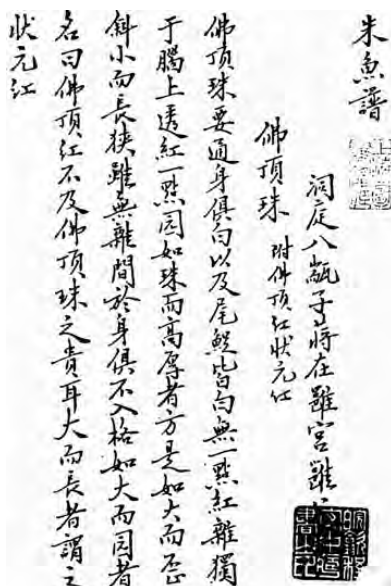 朱魚譜
洞庭八瓻子蔣在雝宫雝
佛頂珠 附佛頂紅狀元红
佛頂珠要通身俱白以及尾鬣皆白無一點紅雜獨
于腦上透紅一點园如珠而高厚者方是如大而歪
斜小而長狹雖無雜間於身俱不入格如大而园者
名曰佛頂红不及佛頂珠之貴耳大而長者謂之
狀元红